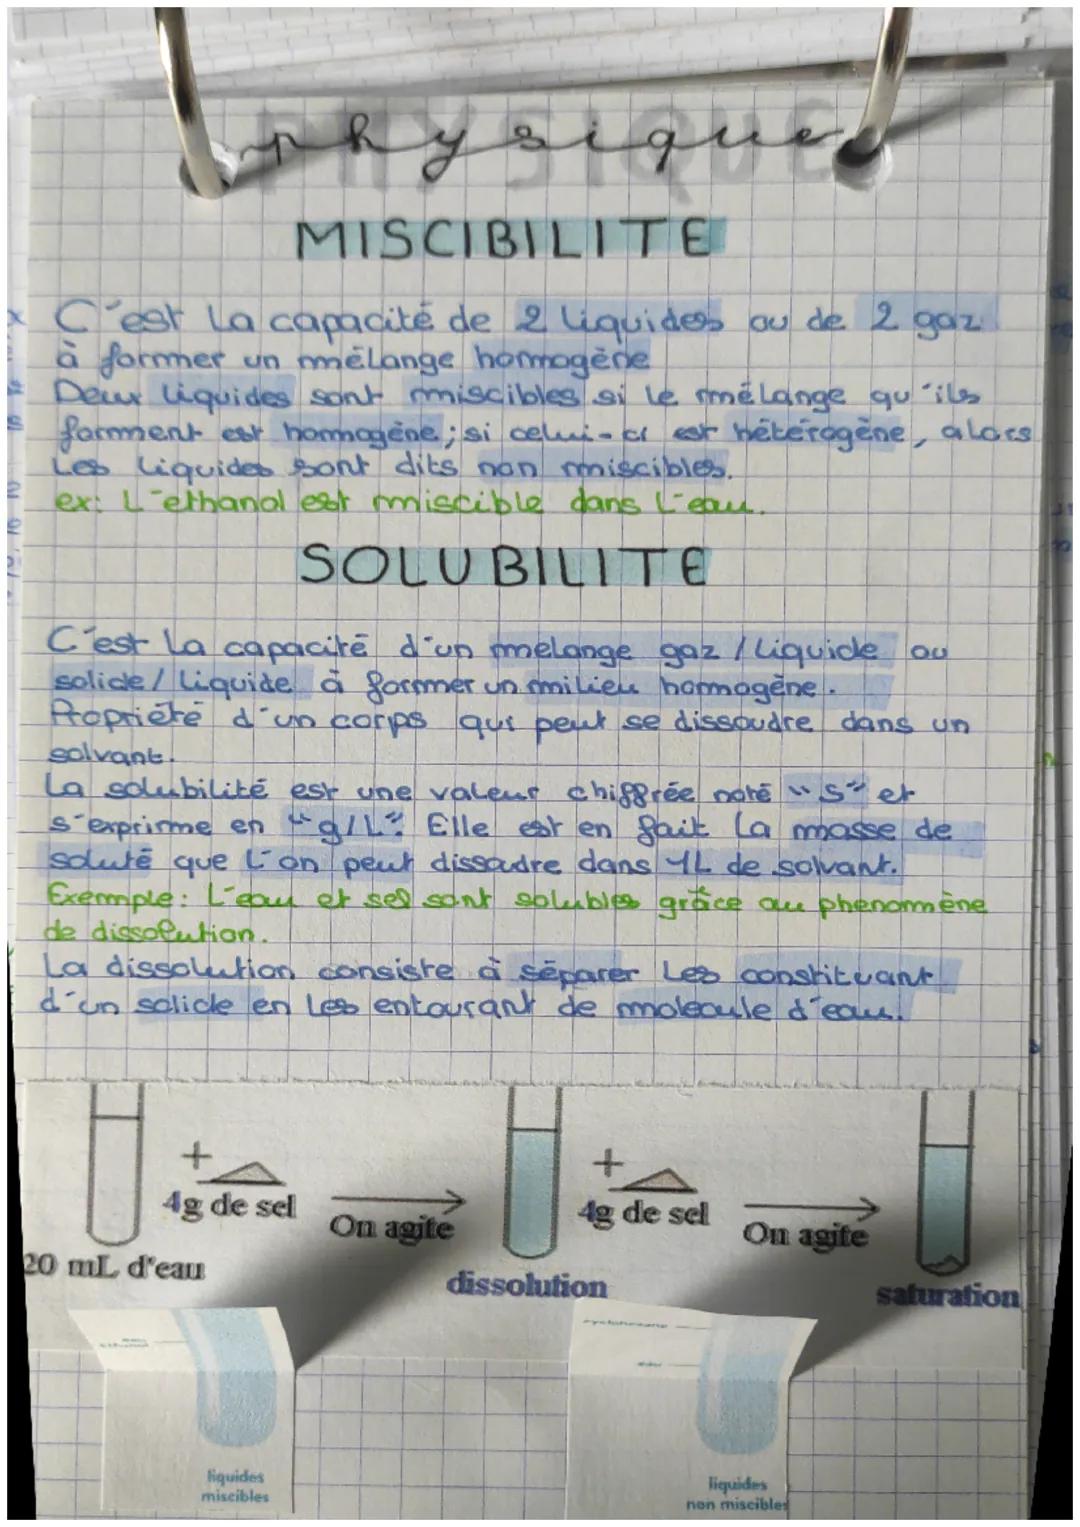 physique
PHYSIQUE
MISCIBILITE
C'est la capacité de 2 liquides ou de 2 gaz
à former un mélange homogène
Deux liquides sont miscibles si le mélange qu'ils
forment est homogène ; si celui-ci est hétérogène, alors
les liquides sont dits non miscibles.
ex: L'ethanol est miscible dans l'eau.
SOLUBILITE
C'est la capacité d'un mélange gaz / liquide ou
solide / liquide à former un milieu homogène.
Propriété d'un corps qui peut se dissoudre dans un
solvant.
La solubilité est une valeur chiffrée noté "s" et
s'exprime en "g/L". Elle est en fait la masse de
soluté que l'on peut dissoudre dans 1L de solvant.
Exemple: L'eau et sel sont solubles grâce au phenomène
de dissolution.
La dissolution consiste à séparer les constituant
d'un solide en les entourant de molecule d'eau.
+
4g de sel
On agite
+
4g de sel
On agite
20 mL d'eau
dissolution
saturation
eau
ethanol
cyclohexane
eau
liquides
miscibles
liquides
non miscibles